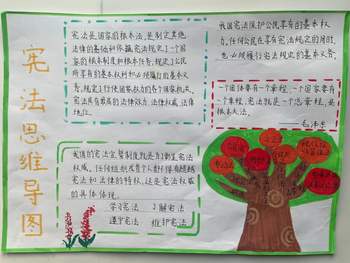 宪法思维导图
宪法是国家的根本法，是制定其他
法律的基础和依据，宪法规定了一个国
家的根本制度和根本任务，规定了公民
所享有的基本权利和必须履行的基本义
务，规定了行使国家权力的各个国家机关，
宪法具有最高的法律效力、法律权威、法律
地位。
我国宪法保护公民享有的基本权
力，任何公民在享有宪法规定的同时，
也必须履行宪法规定的基本义务。
一个团体要有一个章程，一个国家要有
一个章程，宪法就是一个总章程，是
根本大法。
——毛泽东
权威，任何组织或者个人都不得有超越
宪法和法律的特权，这是宪法权威
的具体体现。
学习宪法 了解宪法
遵守宪法 维护宪法